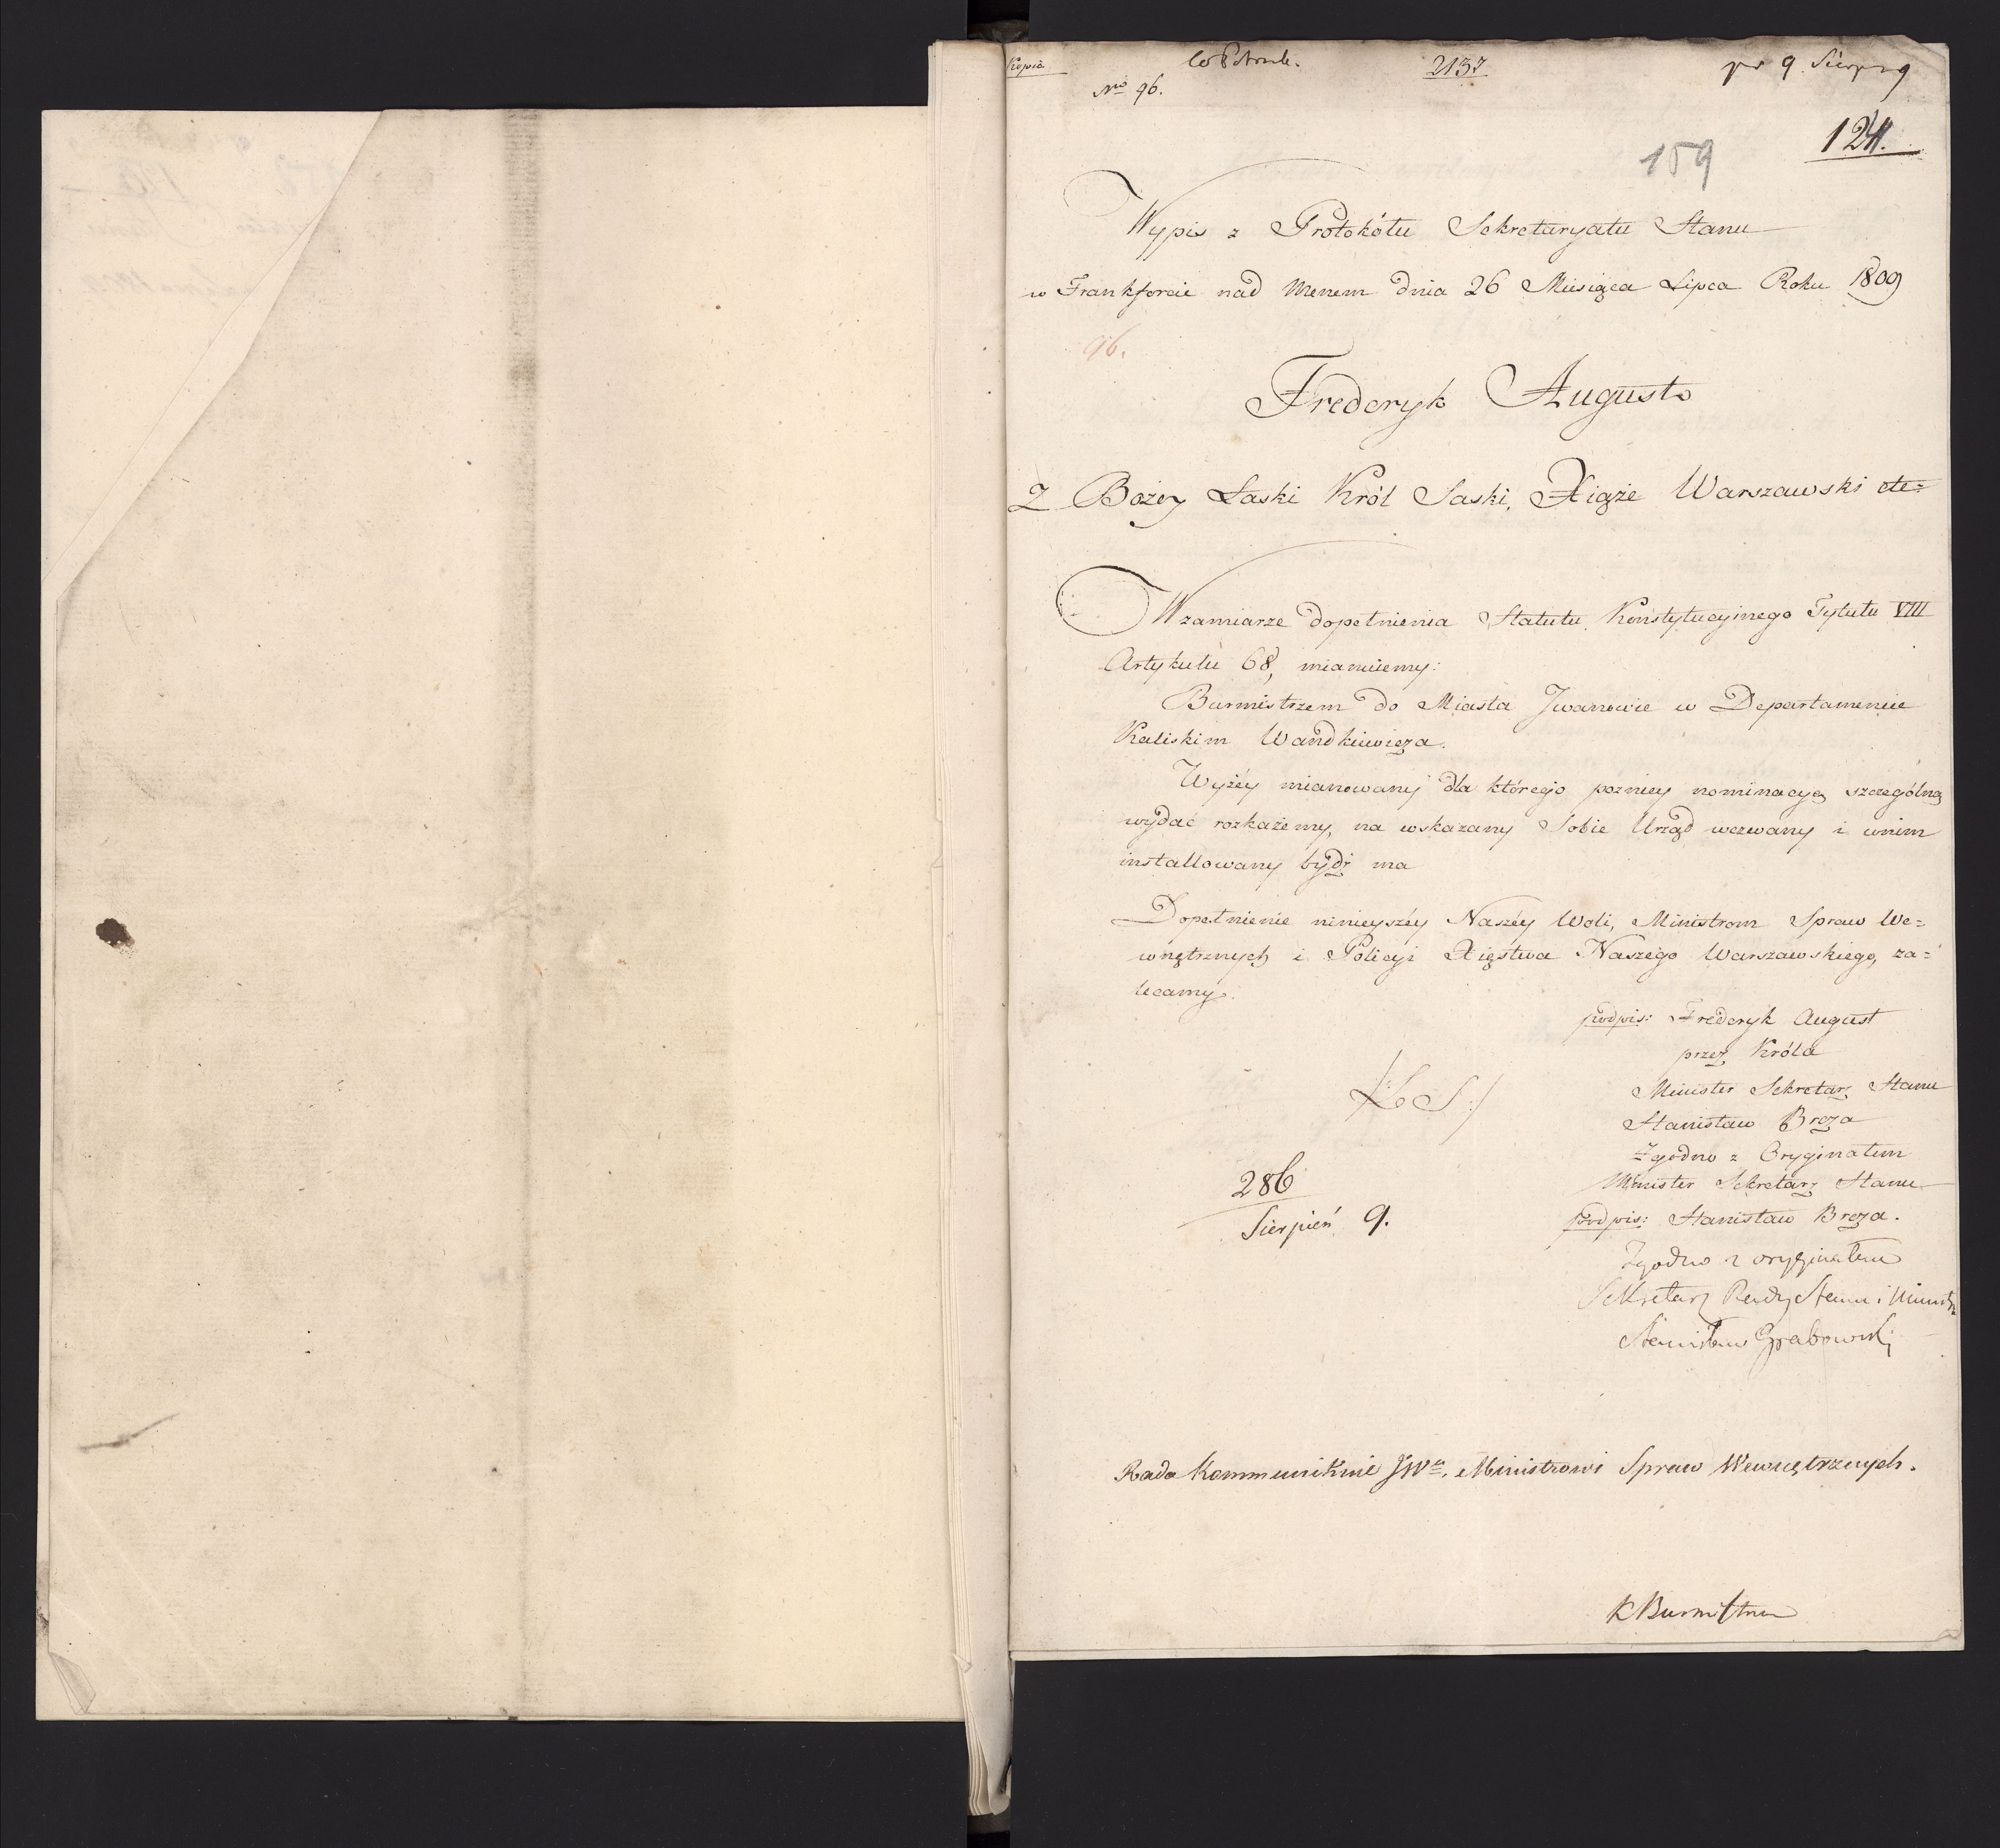 Kopia
2137
pr 9 Sierpn 9
No 96.
124.
159
Wypis z Protokółu Sekretaryatu Stanu
w Frankforcie nad Menem dnia 26 Miesiąca Lipca Roku 1809
96.
Frederyk August
Z Bożey Łaski Król Saski, Xiąże Warszawski etc:
W zamiarze dopełnienia Statutu Konstytucyinego Tytułu VIII
Artykułu 68, mianuiemy:
Burmistrzem do Miasta Iwanowic w Departamencie
Kaliskim Wandkiewicza.
Wyżéy mianowany dla którego pozniey nominacyą szczególną
wydać rozkażemy, na wskazany Sobie Urząd wezwany i wnim
installowany bydź ma
Dopełnienie ninieyszéy Naszéy Woli, Ministrom Spraw We=
wnętrznych i Policyi Xięstwa Naszego Warszawskiego, za=
lecamy.
podpis: Frederyk August
przez Króla
Minister Sekretarz Stanu
/:L S:/
Stanisław Breza
Zgodno z Oryginałem
Minister Sekretarz Stanu
286
podpis: Stanisław Breza.
Sierpień 9.
Zgodno z oryginałem
Sekretarz Rady Stanu i Ministr
Stanisław Grabowski
Rada kommunikuie JWu. Ministrowi Spraw Wewnętrznych.
K Burmistrza